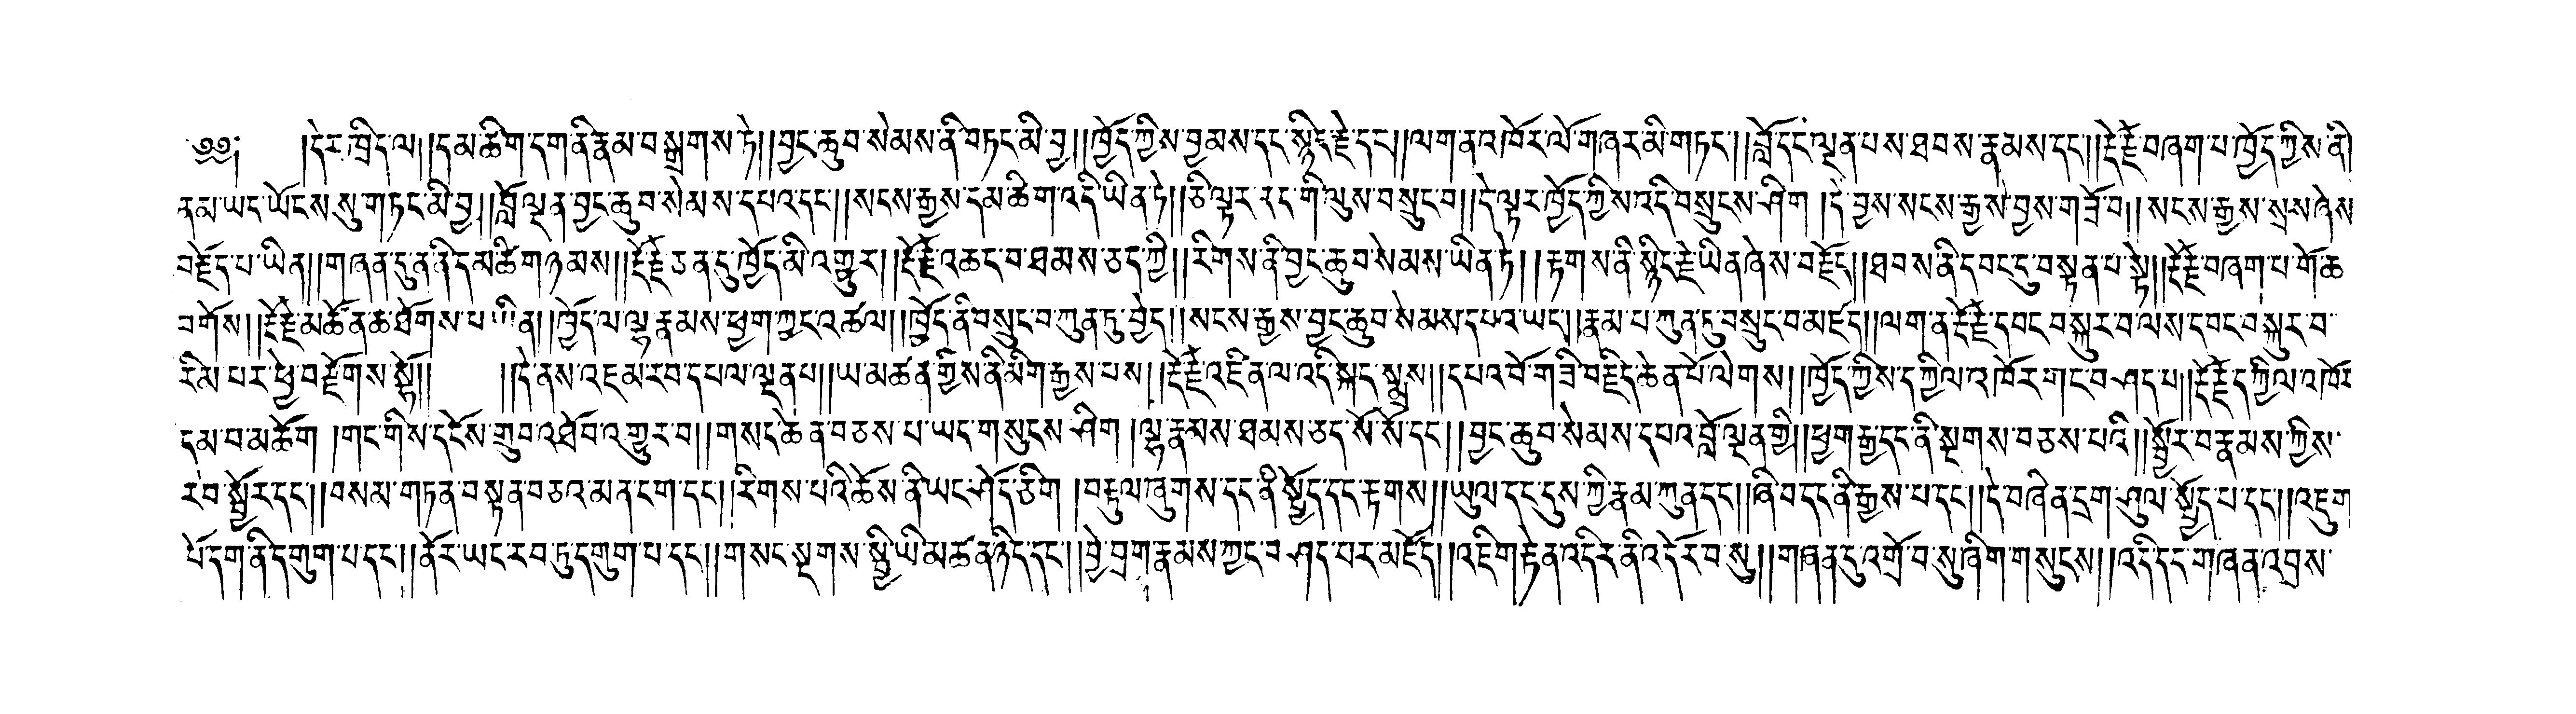 ༄༅། །དེར་ཁྲིད་ལ། །དམ་ཚིག་དག་ནི་རྣམ་བསྒྲགས་ཏེ། །བྱང་ཆུབ་སེམས་ནི་བཏང་མི་བྱ། །ཁྱོད་ཀྱིས་བྱམས་དང་སྙིང་རྗེ་དང་། །ལག་ན་འཁོར་ལོ་གཞར་མི་གཏང་། །བློ་དང་ལྡན་པས་ཐབས་རྣམས་དང་། །རྡོ་རྗེ་བཞག་པ་ཁྱོད་ཀྱིས་ནི།
ནམ་ཡང་ཡོངས་སུ་གཏང་མི་བྱ། །བློ་ལྡན་བྱང་ཆུབ་སེམས་དཔའ་དང་། །སངས་རྒྱས་དམ་ཚིག་འདི་ཡིན་ཏེ། །ཅི་ལྟར་རང་གི་ལུས་བསྲུང་བ། །དེ་ལྟར་ཁྱོད་ཀྱིས་འདི་བསྲུངས་ཤིག །དེ་བྱས་སངས་རྒྱས་བྱས་གཟོ་བ། །སངས་རྒྱས་སྲས་ཞེས་
བརྗོད་པ་ཡིན། །གཞན་དུ་ན་ནི་དམ་ཚིག་ཉམས། །རྡོ་རྗེ་ཅན་དུ་ཁྱོད་མི་འགྱུར། །རྡོ་རྗེ་འཆང་བ་ཐམས་ཅད་ཀྱི། །རིགས་ནི་བྱང་ཆུབ་སེམས་ཡིན་ཏེ། །རྟགས་ནི་སྙིང་རྗེ་ཡིན་ཞེས་བརྗོད། །ཐབས་ནི་དབང་དུ་བསྟན་པ་སྟེ། །རྡོ་རྗེ་བཞག་པ་གོ་ཆ་
བགོས། །རྡོ་རྗེ་མཚོན་ཆ་ཐོགས་པ་ཡིན། །ཁྱོད་ལ་ལྷ་རྣམས་ཕྱག་ཀྱང་འཚལ། །ཁྱོད་ནི་བསྲུང་བ་ཀུན་ཏུ་བྱེད། །སངས་རྒྱས་བྱང་ཆུབ་སེམས་དཔའ་ཡང་། །རྣམ་པ་ཀུན་ཏུ་བསྲུང་བ་མཛད། །ལག་ན་རྡོ་རྗེ་དབང་བསྐུར་བ་ལས་དབང་བསྐུར་བ་
རིམ་པར་ཕྱེ་བ་རྫོགས་སྷོ།། །།དེ་ནས་འཇམ་རབ་དཔལ་ལྡན་པ། །ཡ་མཚན་གྱིས་ནི་མིག་རྒྱས་པས། །རྡོ་རྗེ་འཛིན་ལ་འདི་སྐད་སྨྲས། །དཔའ་བོ་གཟི་བརྗིད་ཆེན་པོ་ལེགས། །ཁྱོད་ཀྱིས་དཀྱིལ་འཁོར་གང་བཤད་པ། །རྡོ་རྗེ་དཀྱིལ་འཁོར་
དམ་བ་མཆོག །གང་གིས་དངོས་གྲུབ་འཐོབ་འགྱུར་བ། །གསད་ཆེན་བཅས་པ་ཡང་གསུངས་ཤིག །ལྷ་རྣམས་ཐམས་ཅད་སོ་སོ་དང་། །བྱང་ཆུབ་སེམས་དཔའ་བློ་ལྡན་གྱི། །ཕྱག་རྒྱ་དང་ནི་སྔགས་བཅས་པའི། །སྦྱོར་བ་རྣམས་ཀྱིས་
རབ་སྦྱོར་དང་། །བསམ་གཏན་བསྟན་བཅའ་མན་ངག་དང་། །རིགས་པའི་ཆོས་ནི་ཡང་ཤོད་ཅིག །བརྟུལ་ཞུགས་དང་ནི་སྤྱོད་དང་རྟགས། །ཡུལ་དང་དུས་ཀྱི་རྣམ་ཀུན་དང་། །ཞི་བ་དང་ནི་རྒྱས་པ་དང་། །དེ་བཞིན་དྲག་ཤུལ་སྤྱོད་པ་དང་། །འཇུག་
པོ་དག་ནི་དགུག་པ་དང་། །ནོར་ཡང་རབ་ཏུ་དགུག་པ་དང་། །གསང་སྔགས་སྤྱི་ཡི་མཚན་ཉིད་དང་། །བྱེ་བྲག་རྣམས་ཀྱང་བཤད་པར་མཛོད། །འཇིག་རྟེན་འདིར་ནི་འདོར་བ་སུ། །གཞན་དུ་འགྲོ་བ་སུ་ཞིག་གསུངས། །འདི་དང་གཞན་འབྲས་